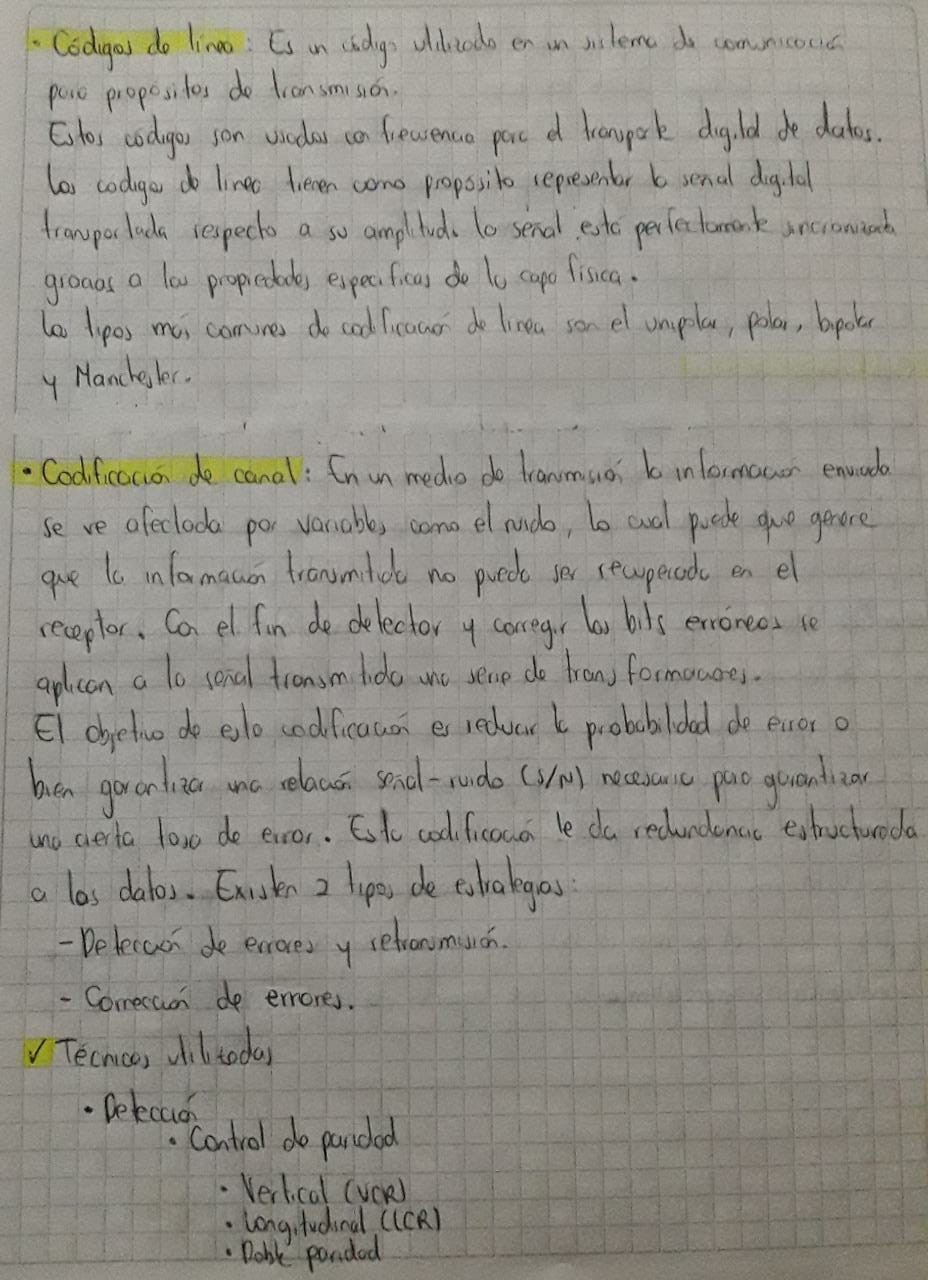 • Códigos de linea: Es un código utilizado en un sistema de comunicación
para propósitos de transmisión.
Estos códigos son usados con frecuencia para el transporte digital de datos.
Los codigos de linea tienen como proposito representar la señal digital
transportada respecto a su amplitud. la señal está perfectamente sincronizada
gracias a las propiedades especificas de la capa física.
Los tipos más comunes de codificación de linea son el unipolar, polar, bipolar
y Manchester.
• Codificación de canal: En un medio de transmisión la informacion enviada
se ve afectada por variables como el ruido, lo cual puede que genere
que la información transmitida no pueda ser recuperada en el
receptor. Con el fin de detectar y corregir los bits erróneos se
aplican a la señal transmitida una serie de transformaciones.
El objetivo de esta codificación es reducir la probabilidad de error o
bien garantizar una relación señal-ruido (S/N) necesaria para garantizar
una cierta tasa de error. Esta codificación le da redundancia estructurada
a los datos. Existen 2 tipos de estrategias:
- Detección de errores y retransmisión.
- Corrección de errores.
✓ Técnicas utilizadas
• Detección
• Control de paridad
• Vertical (VCR)
• Longitudinal (LCR)
• Doble paridad